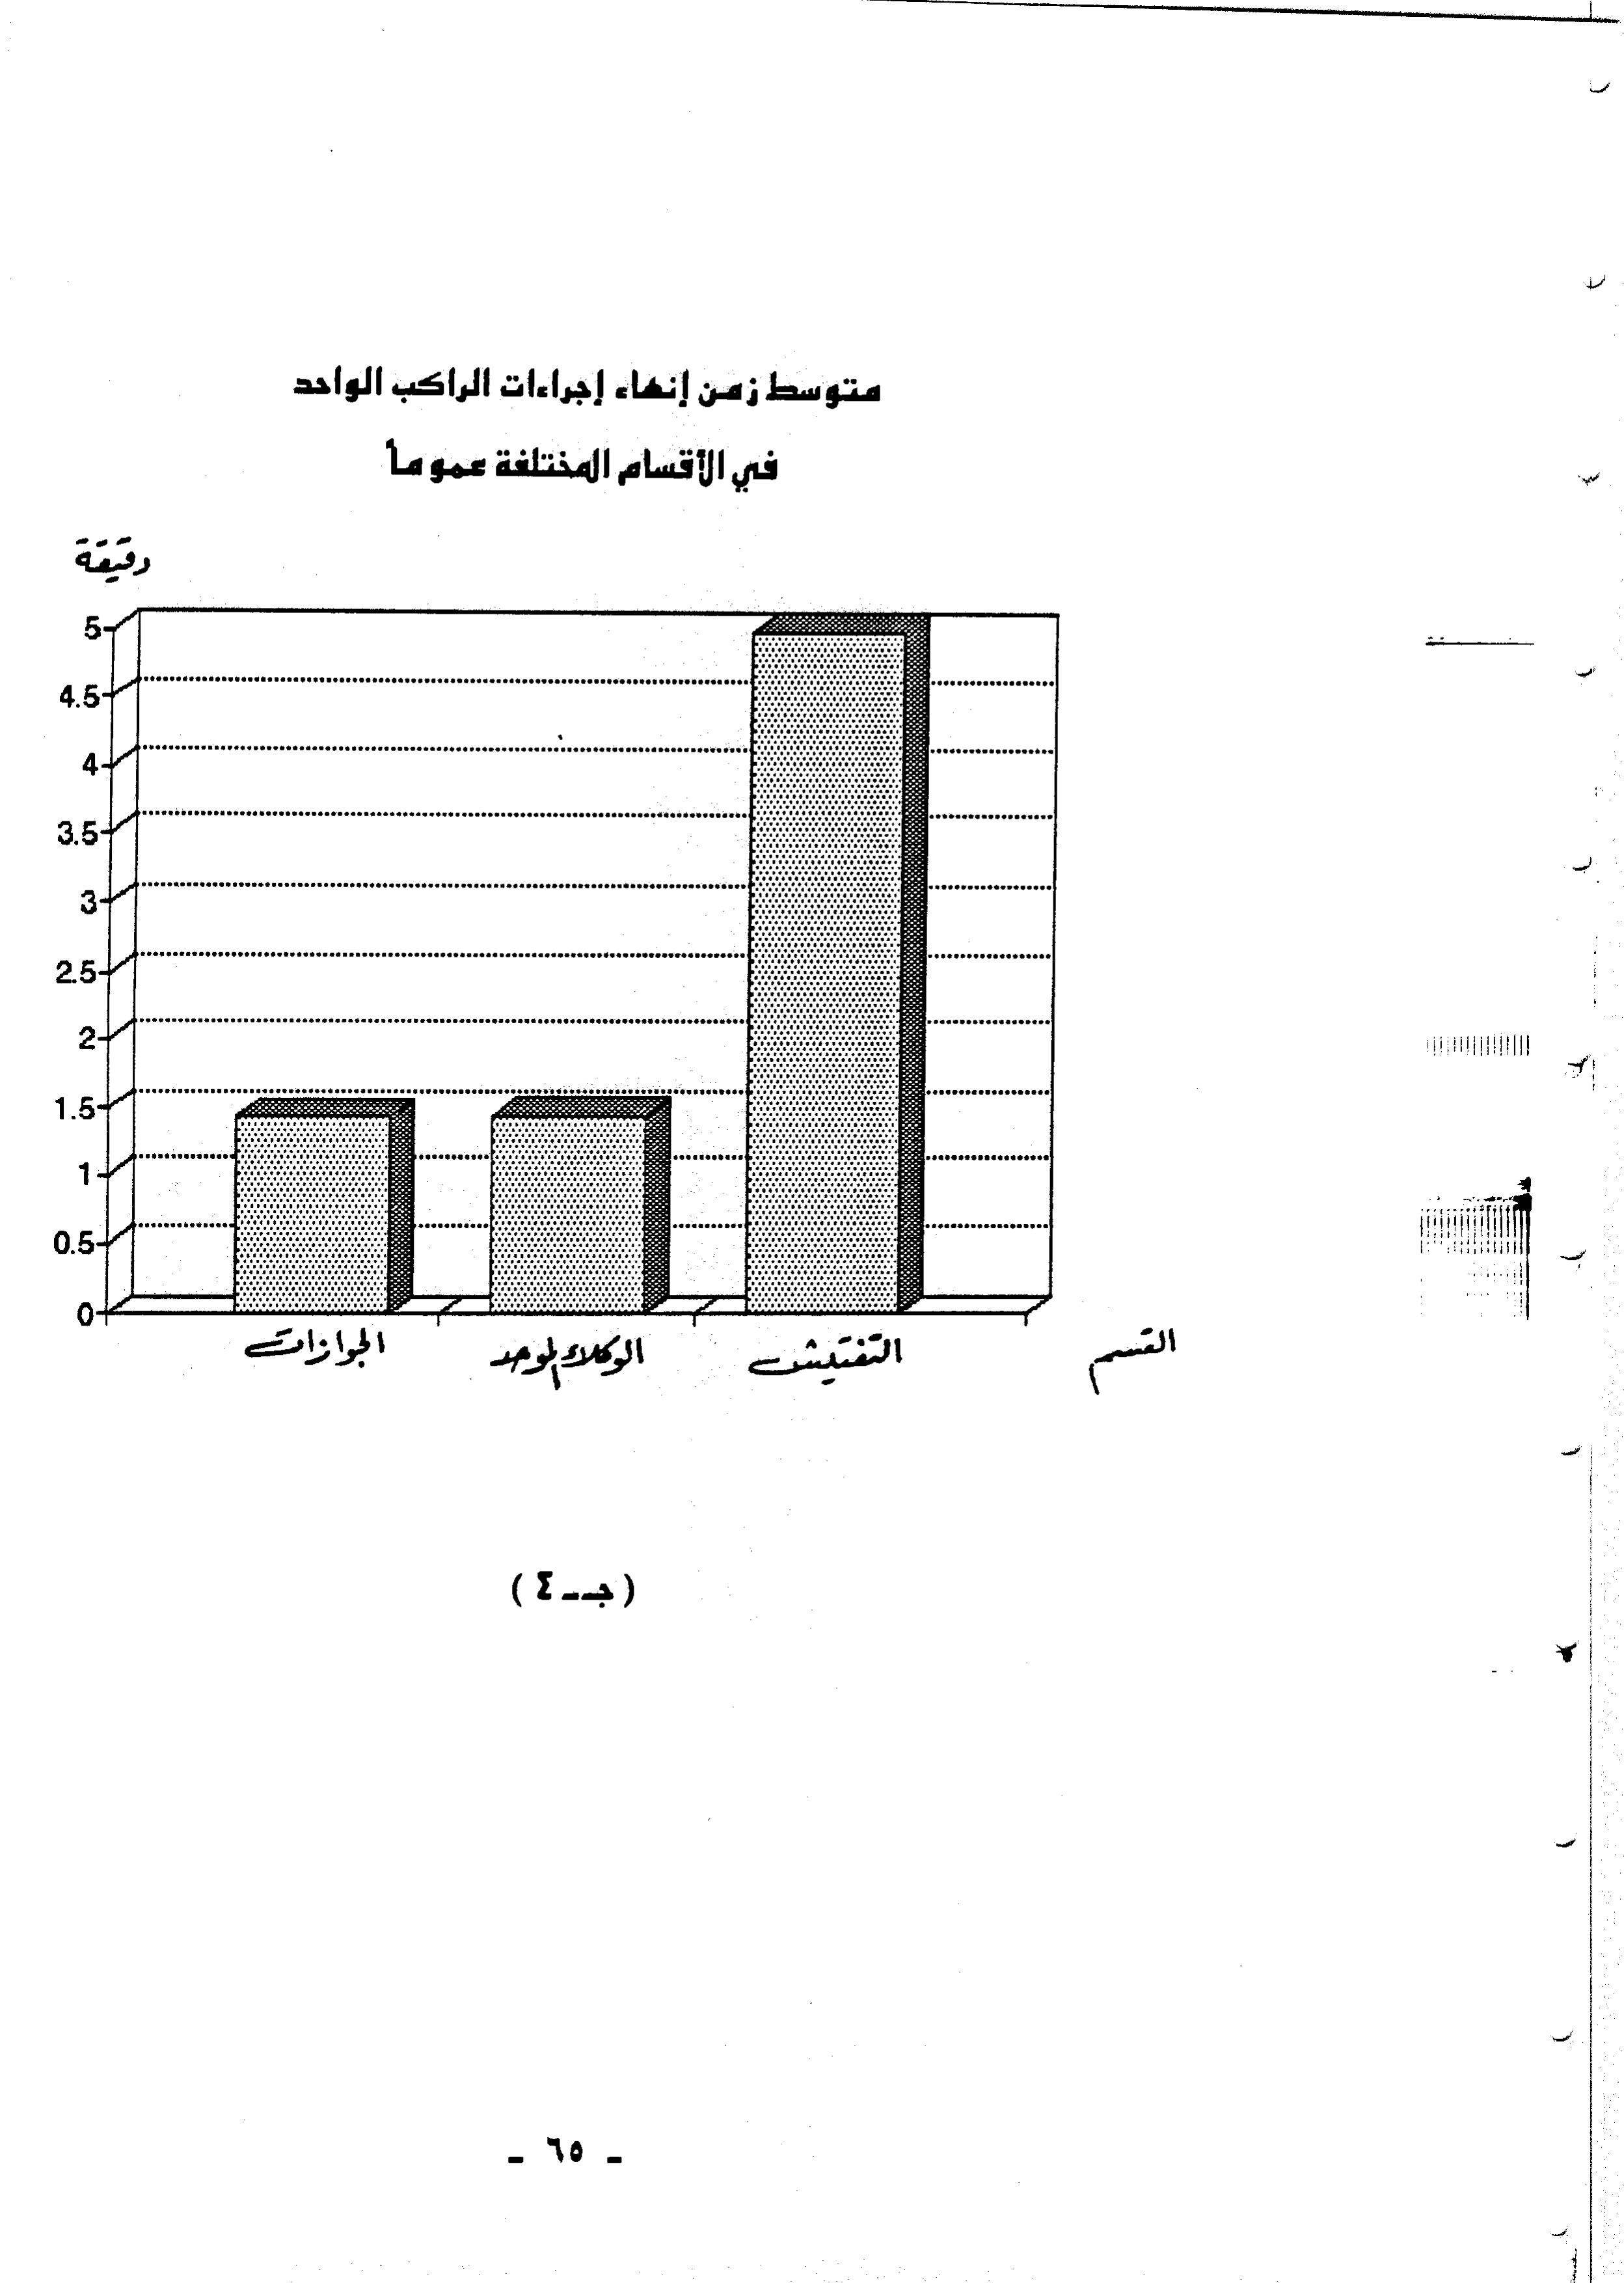 متوسط زمن إنهاء إجراءات الراكب الواحد
في الأقسام المختلفة عموماً
دقيقة
5
4.5
4
3.5
3
2.5
2
1.5
1
0.5
0
الجوازات
الوكلاء الموحد
التفتيش
القسم
(جـ - ٤)
- ٦٥ -